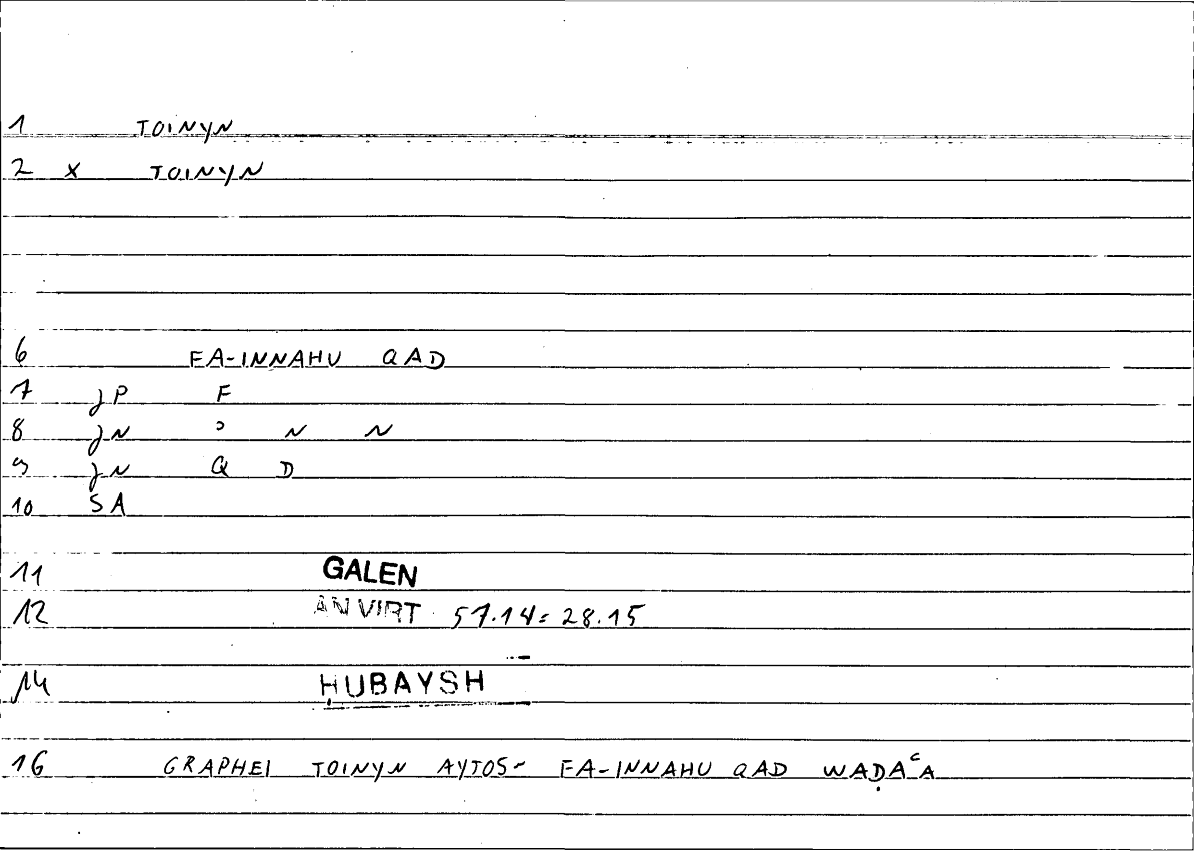 1 TOINYN
2 x TOINYN
6 FA-INNAHU QAD
7 jP F
8 jN ʾ N N
9 jN Q D
10 SA
11 GALEN
12 AN VIRT 57.14 = 28.15
14 ḤUBAYSH
16 GRAPHEI TOINYN AYTOS ~ FA-INNAHU QAD WAḌAʿA